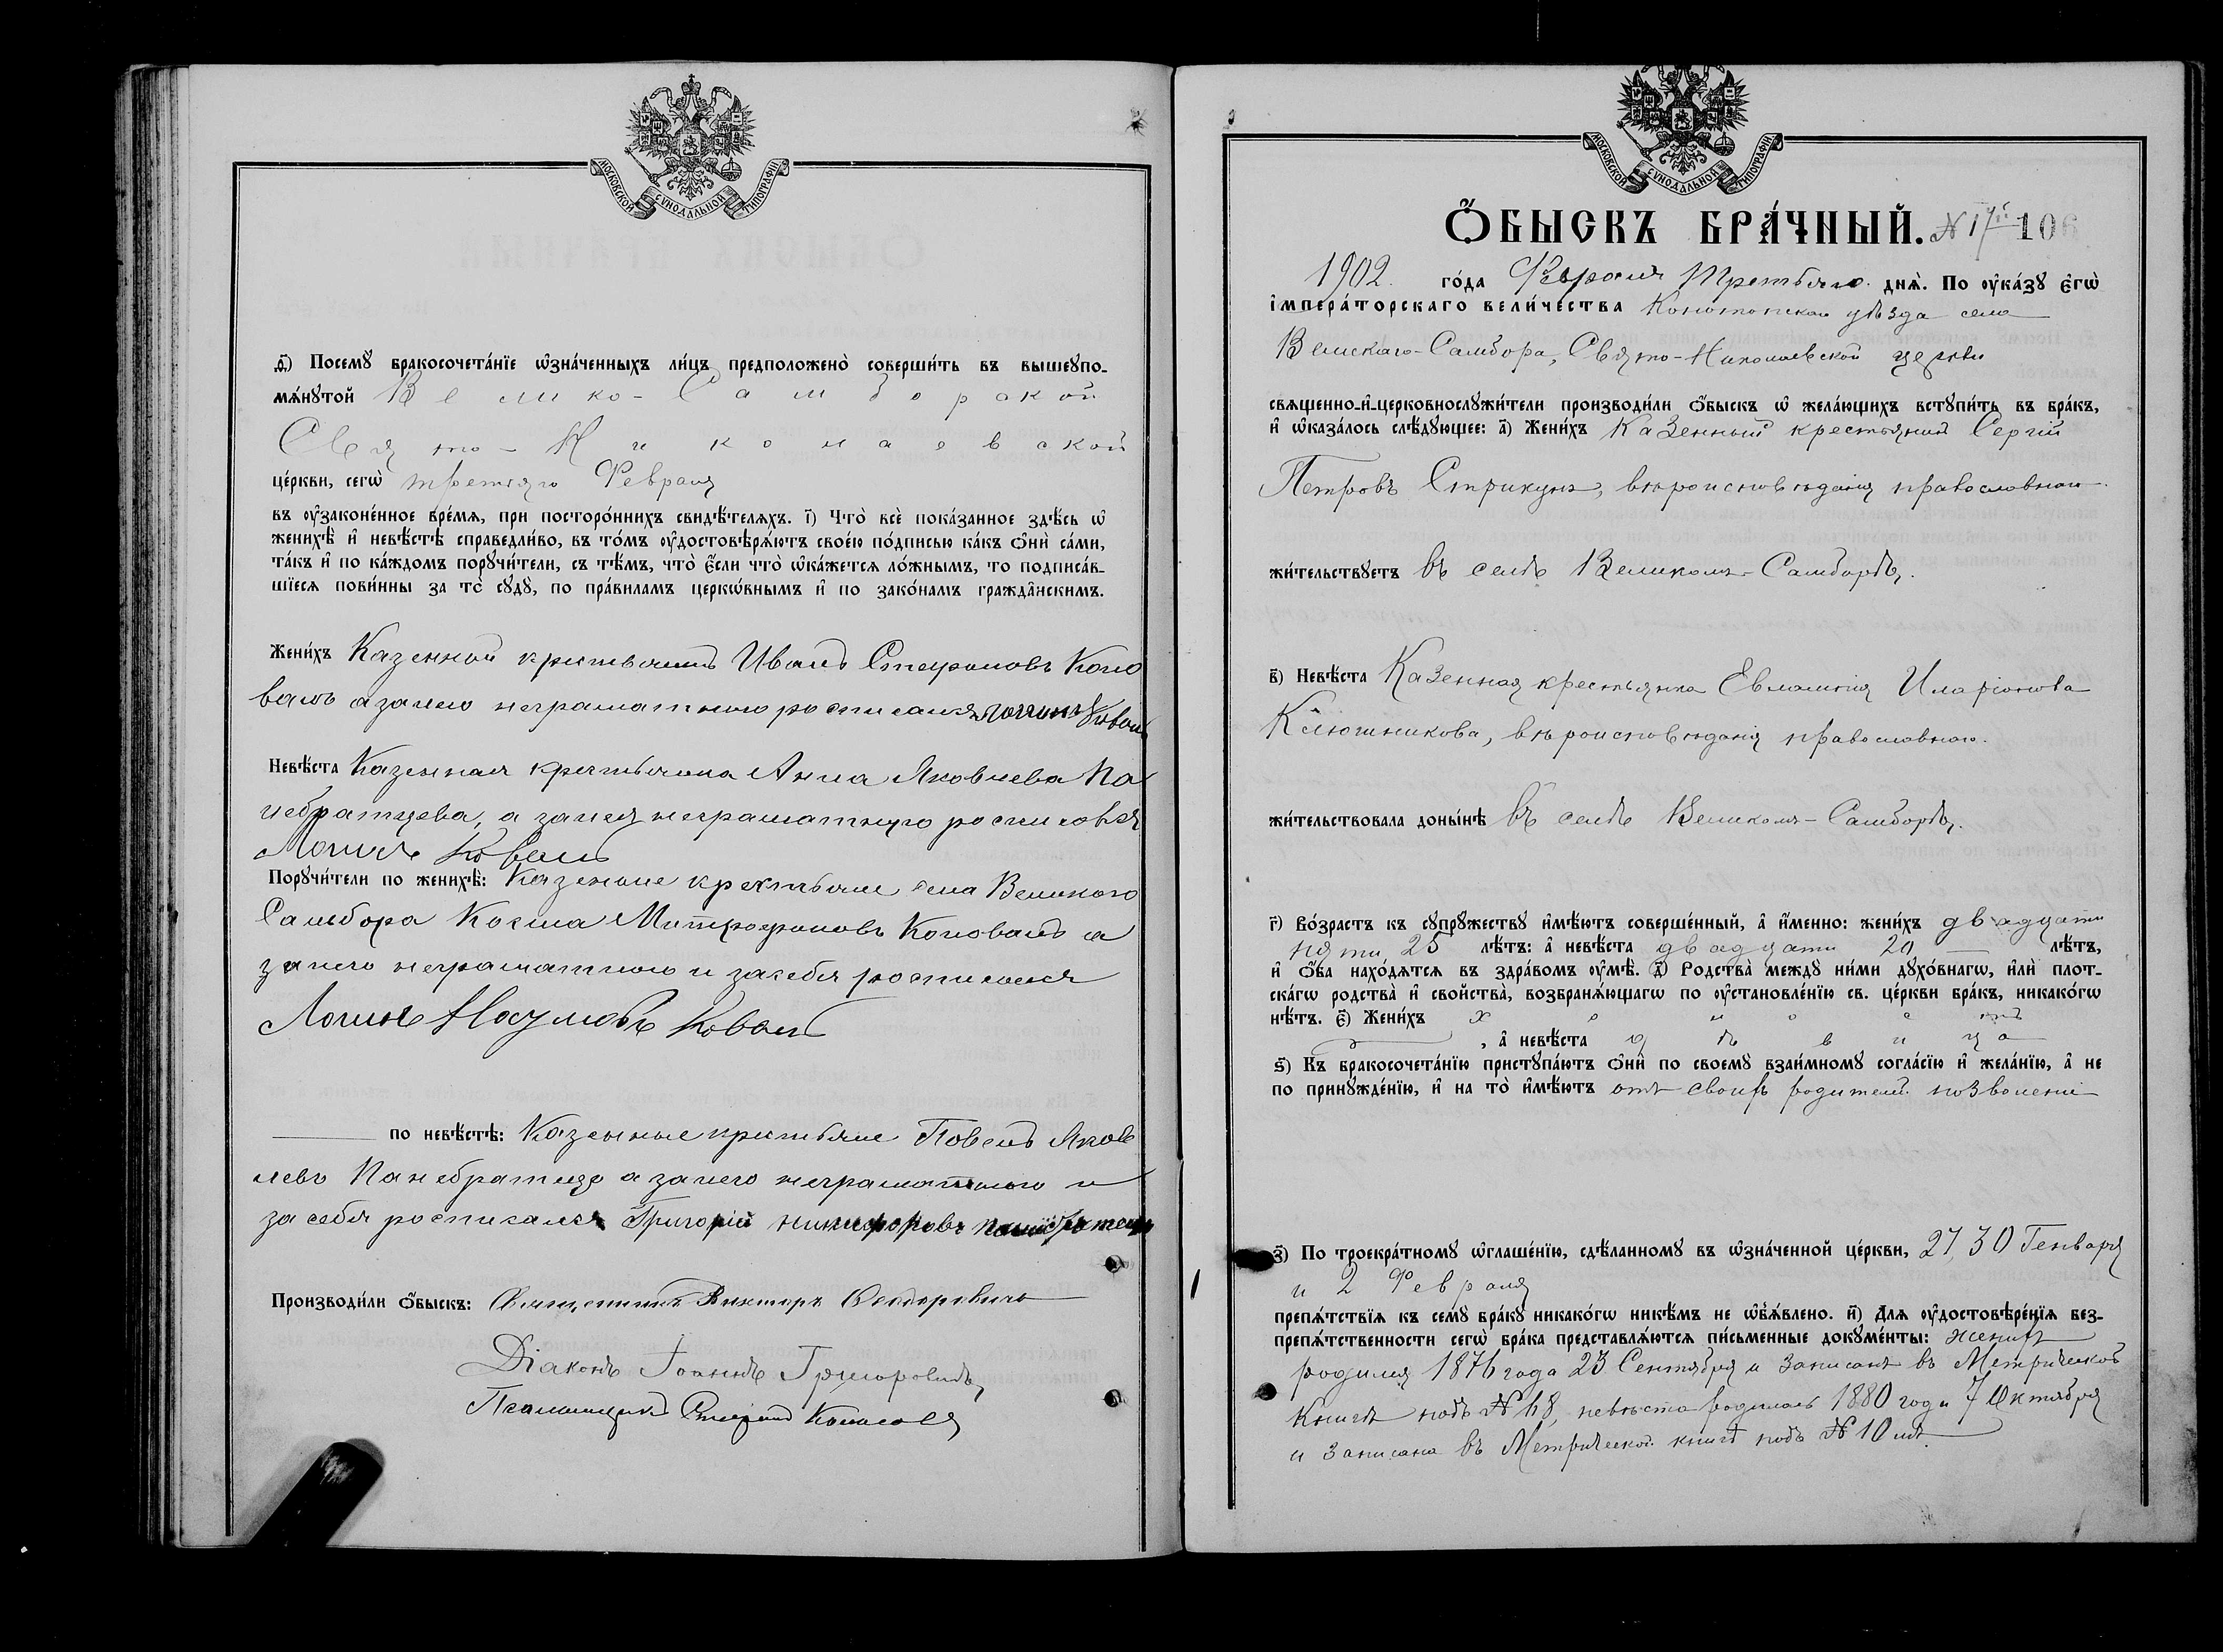 МОСКОВСКОЙ СУНОДАЛЬНОЙ ТИПОГРАФІИ
д҃і) Посемꙋ̀ бракосочета́нїе ѡ҆зна́ченныхъ ли́цъ предположено̀ соверши́ть въ вышеꙋпо-
мѧ́нꙋтой Велико-Самборской
Свято-Николаевской
це́ркви, сегѡ̀ третяго Февраля
въ ᲂу҆зако́ненное вре́мѧ, при посторо́ннихъ свидѣ́телѧхъ. і҃) Что̀ всѐ пока́занное здѣ́сь ѡ҆
женихѣ̀ и҆ невѣ́стѣ справедли́во, въ то́мъ ᲂу҆достовѣрѧ́ютъ свое́ю по́дписью ка́къ ѻ҆нѝ са́ми,
та́къ и҆ по ка́ждомъ порꙋчи́тели, съ тѣ́мъ, что̀ є҆́сли что̀ ѡ҆ка́жется ло́жнымъ, то подписа́в-
шїесѧ пови́нны за то̀ сꙋдꙋ̀, по пра́виламъ церко́внымъ и҆ по зако́намъ гражда́нскимъ.
Жени́хъ Казенной крестьянинъ Иванъ Стефановъ Коно
валъ а за него неграматного росписался Логинъ Коваль
Невѣ́ста Казенная крестьянка Анна Яковлева Па
небратцева, а за нея неграматную росписовся
Логинъ Коваль
Порꙋчи́тели по женихѣ̀: Казеные крестьяне села Великого
Самбора Косма Митрофановъ Коновалъ а
за него неграматного и за себя росписался
Логинъ Наумовъ Коваль
по невѣ́стѣ: Казенные крестьяне Повелъ Яков
левъ Панебратецъ а за него неграматного и
за себя росписался Григорій Никифоровъ Панибратецъ
Производи́ли ѻ҆́быскъ: Священникъ Викторъ Ѳедоровичъ
Діаконъ Іоаннъ Григоровичъ
Псаломщикъ Стефанъ
МОСКОВСКОЙ СУНОДАЛЬНОЙ ТИПОГРАФІИ
Ѻ҆́БЫСКЪ БРА́ЧНЫЙ. № 17й 106
1902. го́да Февраля Третьяго. днѧ̀. По ᲂу҆ка́зꙋ є҆гѡ̀
і҆мпера́торскаго вели́чества Конотопскаго уѣзда села
Великаго-Самбора, Свято-Николаевской церкви
свѧщенно-и҆-церковнослꙋжи́тели производи́ли ѻ҆́быскъ ѡ҆ жела́ющихъ встꙋпи́ть въ бра́къ,
и҆ ѡ҆каза́лось слѣ́дꙋющее: а҃) Жени́хъ Казенный крестьянинъ Сергій
Петровъ Стрикунъ, вѣроисповѣданія православнаго.
жи́тельствꙋетъ въ селѣ Великомъ-Самборѣ.
в҃) Невѣ́ста Казенная крестьянка Евлампія Иларіонова
Ключникова, вѣроисповѣданія православнаго.
жи́тельствовала доны́нѣ въ селѣ Великомъ-Самборѣ.
г҃) Во́зрастъ къ сꙋпрꙋ́жествꙋ и҆мѣ́ютъ соверше́нный, а҆ и҆́менно: жени́хъ двадцати
пяти 25 лѣ́тъ: а҆ невѣ́ста двадцати 20 лѣ́тъ,
и҆ ѻ҆́ба нахо́дѧтсѧ въ здра́вомъ ᲂу҆мѣ̀. д҃) Родства̀ междꙋ ни́ми дꙋхо́внагѡ, и҆лѝ плот-
ска́гѡ родства̀ и҆ свойства̀, возбранѧ́ющагѡ по ᲂу҆становле́нїю св. це́ркви бра́къ, никако́гѡ
нѣ́тъ. є҃) Жени́хъ холостъ
, а҆ невѣ́ста дѣвица
ѕ҃) Къ бракосочета́нїю пристꙋпа́ютъ ѻ҆нѝ по своемꙋ̀ взаи́мномꙋ согла́сїю и҆ жела́нїю, а҆ не
по принꙋжде́нїю, и҆ на то̀ и҆мѣ́ютъ отъ своихъ родителей позволеніе
з҃) По троекра́тномꙋ ѡ҆глаше́нїю, сдѣ́ланномꙋ въ ѡ҆зна́ченной це́ркви, 27, 30 Генваря
и 2 Февраля
препѧ́тствїѧ къ семꙋ̀ бра́кꙋ никако́гѡ никѣ́мъ не ѡ҆б̾ѧ́влено. и҃) Для ᲂу҆достовѣре́нїѧ без-
препѧ́тственности сегѡ̀ бра́ка представлѧ́ютсѧ пи́сьменные докꙋме́нты: женихъ
родился 1876 года 23 Сентября и записанъ въ Метрической
Книгѣ подъ № 48, невѣста родилась 1880 года 7 Октября
и записана въ Метрической книгѣ подъ № 10 мъ.